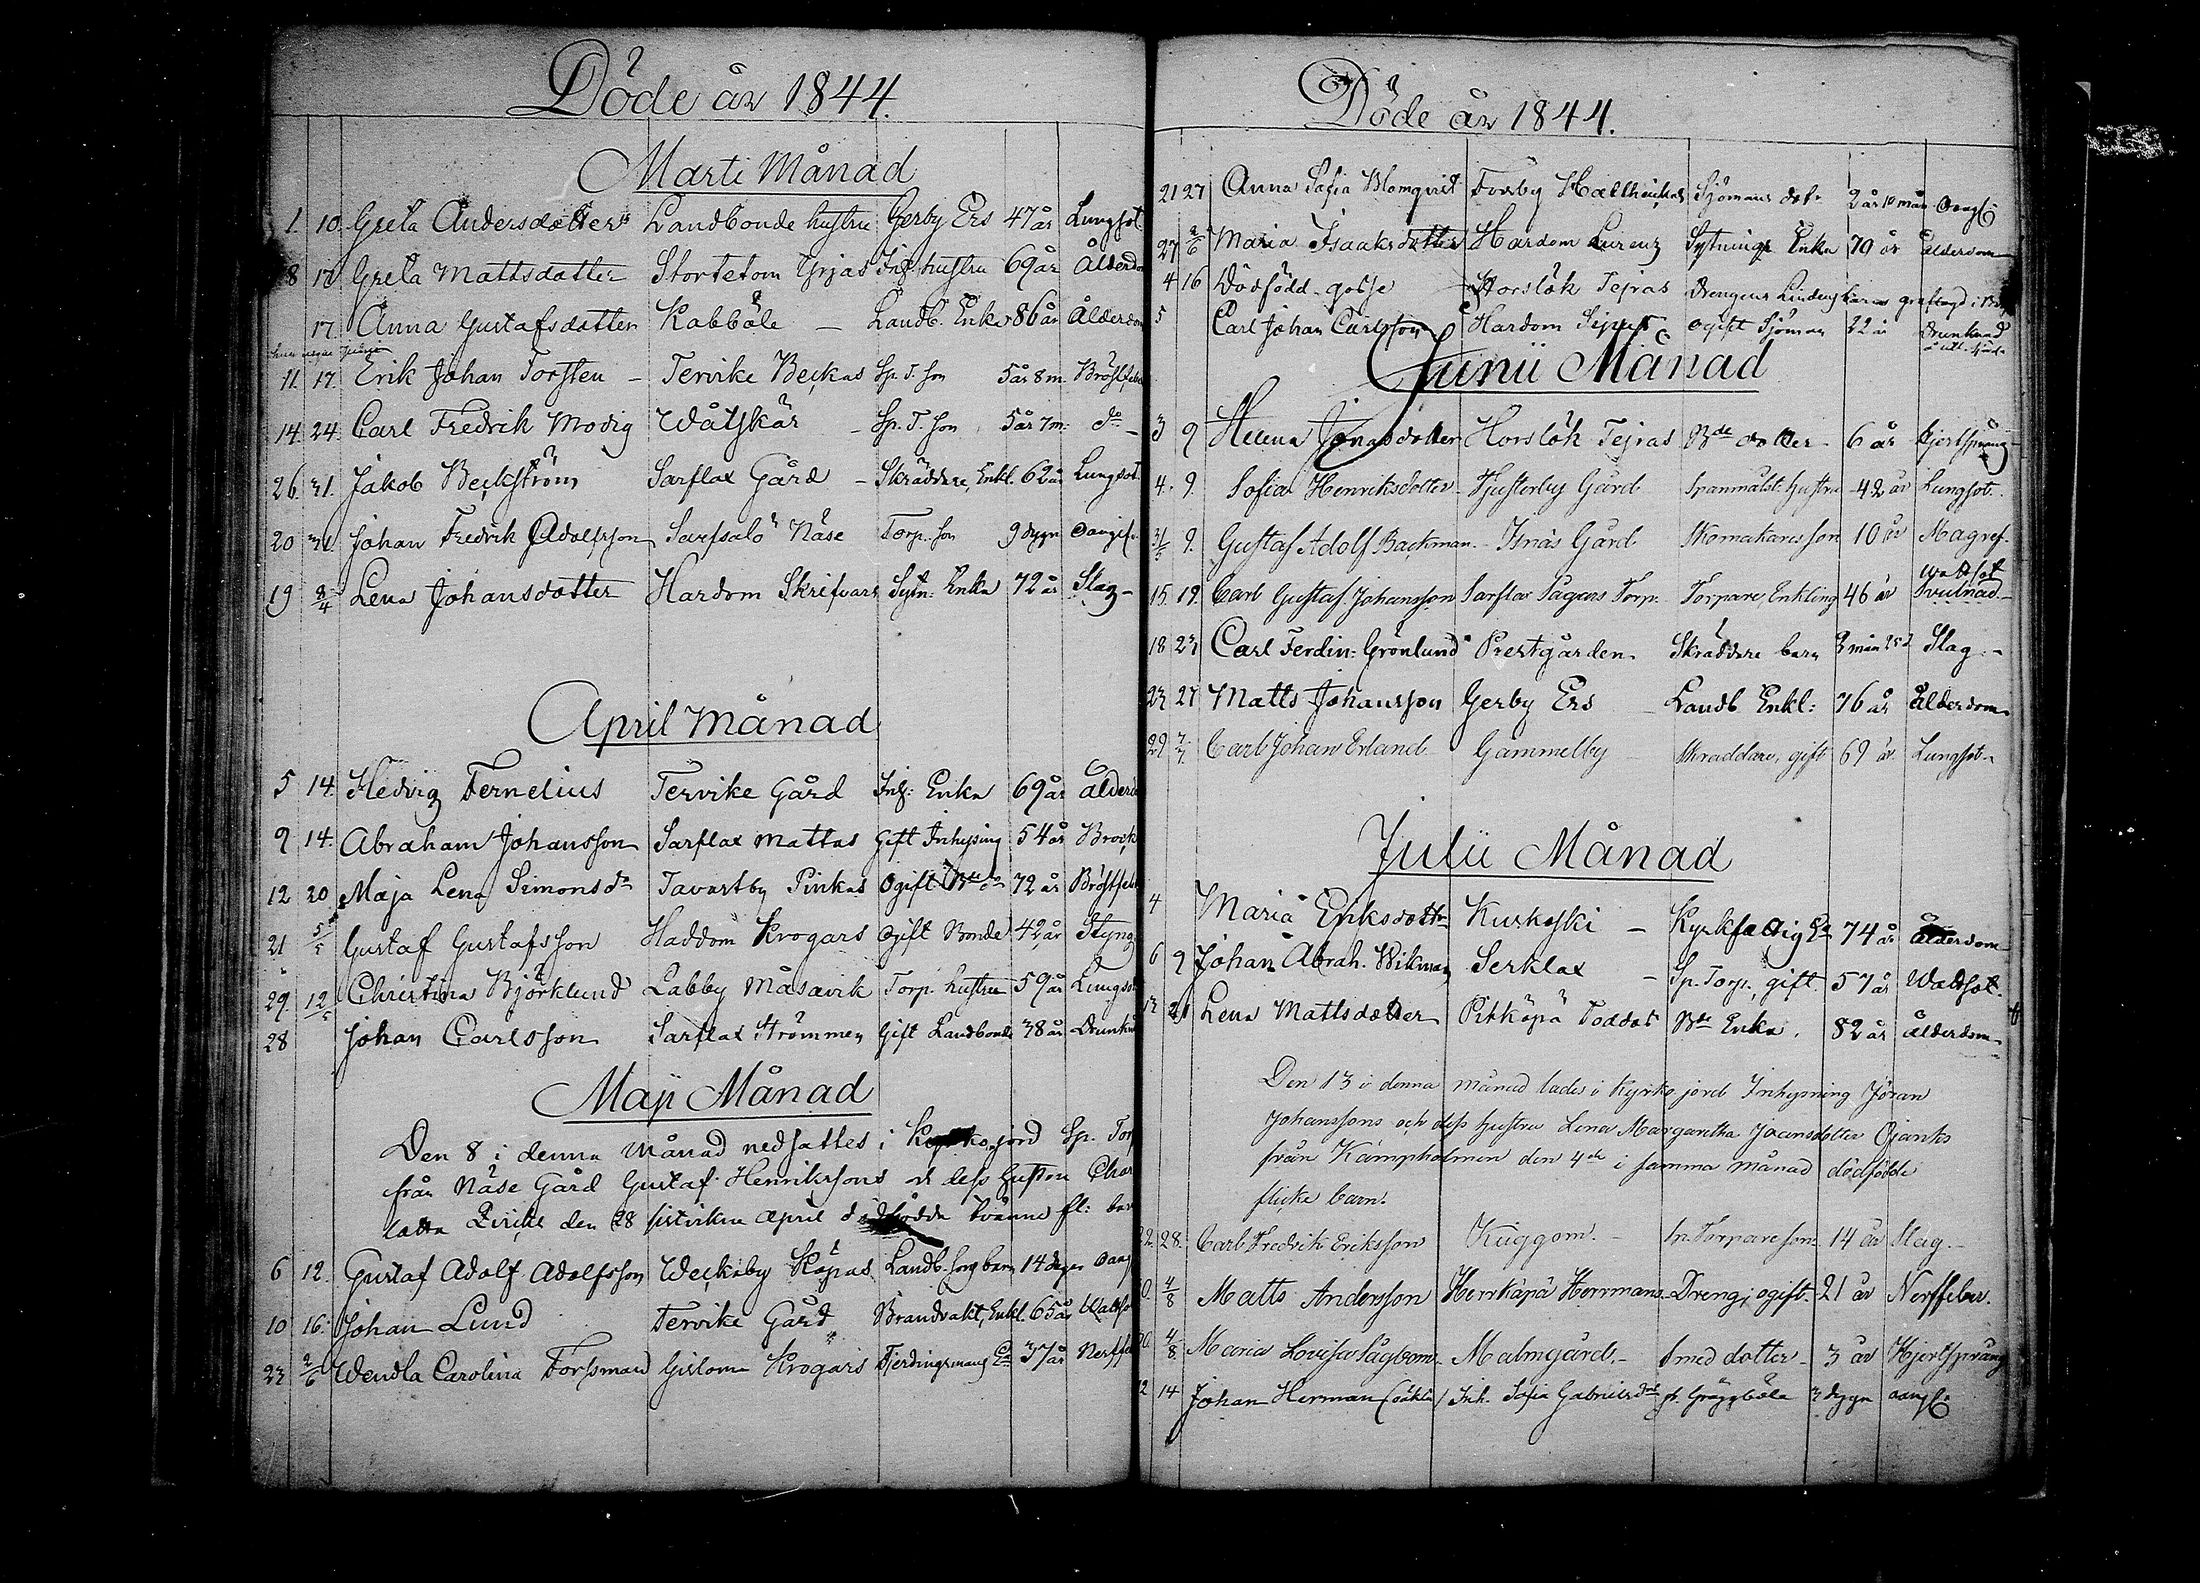 Döde år 1844.
Marti Månad
1. 10. Greta Andersdotter Landbonde hustru Gerby Ers 47 år Lungsot
8 17 Greta Mattsdotter Stortetom Inh. hustru 69 år Ålderdo
17. Anna Gustafsdotter Kabböle – Landb. Enka 86 år Ålderdom
11. 17. Erik Johan Torsten – Tervike Beckas Sp. T. son 5 år 8 m. Bröstfeb
14. 24. Carl Fredrik Modig Wåtskär – Sp. T. son 5 år 7 m. do –
26. 31. Jakob Beckström Sarflax Gård – Skräddare, Enkl. 62 år Lungsot
20 31. Johan Fredrik Adolfsson Sarfsalö Näse Torp. son 9 dygn Oangif.
19 8/4 Lena Johansdotter Hardom Skrifvars Sytn: Enka 72 år Slag –
April Månad
5 14. Hedvig Fernelius Tervike Gård Inh: Enka 69 år Ålderd
9 14. Abraham Johansson Sarflax Mattas Gift Inhysing 54 år Brock
12 20 Maja Lena Simonsdr Tavastby Pinkas Ogift Bde do 72 år Bröstfeb
21 5/5 Gustaf Gustafsson Haddom Krogars Ogift Bonde 42 år Styng
29. 12/5 Christina Björklund Labby Måsavik Torp. hustru 59 år Lungsot
28 Johan Carlsson Sarflax Strömmen Gift Landbonde 38 år Drunkn
Maji Månad
Den 8 i denna Månad nedsattes i Kyrkojord Sp. Torp
från Näse Gård Gustaf Henrikssons och dess hustru Char
lotta den 28 sistvikne April dödfödda tvänne fl: bar
6 12. Gustaf Adolf Adolfsson Weckoby Köpas Landb. sons barn 14 dagar Oang
10 16. Johan Lund Tervike Gård Brandvakt, Enkl. 65 år Wattso
23 2/6 Wendla Carolina Forssman Gislom Krogars Fjerdingsmans Ea 37 år Nerffe
Döde år 1844.
21 27 Anna Sofia Blomqvist Forsby Sjömans dotr 2 år 10 mån Oangif
27 2/6 Maria Isaaksdotter Hardom Lurenz Sytnings Enka 70 år ålderdom
4 16 Dödfödd gosse Horslök Tejras Drengens
5 Carl Johan Carlsson Hardom Ogift Sjöman 22 år Drunknad
Junii Månad
3 9 Helena Jonasdotter Horslök Tejras Bde dotter – 6 år Hjertsprång
4. 9. Sofia Henriksdotter Tjusterby Gård Spanmålst. hustru 42 år Lungsot.
31/5 9. Gustaf Adolf Backman – Isnäs Gård Skomakaresson 10 år Magref
15. 19. Carl Gustaf Johansson Sarflax Sågars Torp. Torpare, Enkling 46 år Wattsot Svulnad –
18 23 Carl Ferdin: Grönlund Prestgården Skräddare barn 3 mån 25 d Slag –
23 27 Matts Johansson Gerby Ers Landb Enkl: 76 år Ålderdom
29 7/7 Carl Johan Erland Gammelby – Skräddare, gift 69 år Lungsot.
Julii Månad
4 Maria Eriksdotter Kuskoski – Kyrkfattig Ea 74 år ålderdom
6 9 Johan Abrah. Wikman Serklax – Sp. Torp., gift 57 år Wattsot.
13 21 Lena Mattsdotter Pitkäpä Toddas Bde Enka, 82 år ålderdom
Den 13 i denna månad lades i Kyrko jord Inhysning Jöran
Johanssons och dess hustru Lena Margaretha Joansdotter
från Kämpholmen den 4de i samma månad dödfödde
flicke barn.
22. 28. Carl Fredrik Eriksson Kuggom. – Sp. Torpare son 14 år Slag. –
30. 4/8 Matts Andersson Herrkäpä Herrmans Dreng, ogift. 21 år Nerffeber.
30. 4/8 Maria Lovisa Sågbom – Malmgård. – Smed dotter – 3 år Hjertsprång
2 14 Johan Herman (oäkta) Inh. Sofia Gabrielsdr fr. Gräggböle 3 dygn oangif